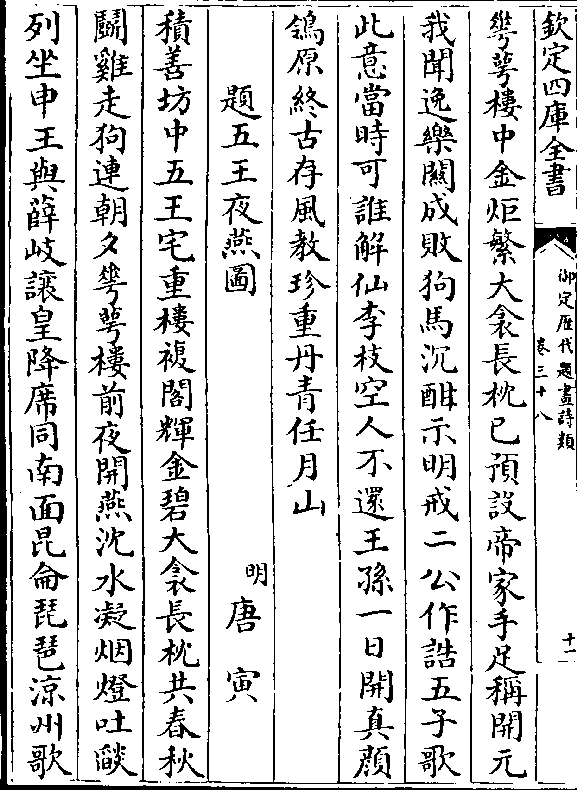 欽定四庫全書
御定歴代題畫詩類
卷三十八
十一
華萼樓中金炬繁大衾長枕已預設帝家手足稱開元
我聞逸樂關成敗狗馬沉酣示明戒二公作誥五子歌
此意當時可誰解仙李枝空人不還王孫一日開真顔
鴒原終古存風教珍重丹青任月山
題五王夜燕圖
明唐寅
積善坊中五王宅重樓複閣輝金碧大衾長枕共春秋
鬬雞走狗連朝夕華萼樓前夜開燕沈水凝烟燈吐燄
列坐申王與薛岐讓皇降席同南面昆侖琵琶涼州歌